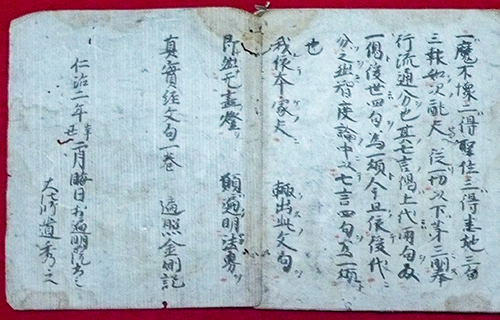 一魔不壞二得聖位三得地三
三報如次配矣 從一切以下第三明奉
行流通分也其七言偈上代兩句為
一偈後世四句為一頌今且依後代
分之此智度論中以七言四句為一頌
也
我依本家文 輙出此文句
即此无盡燈 願遍明法界
真實經文句一卷 遍照金剛記
仁治二年辛丑二月晦日於遍明院書之
大法師道秀之